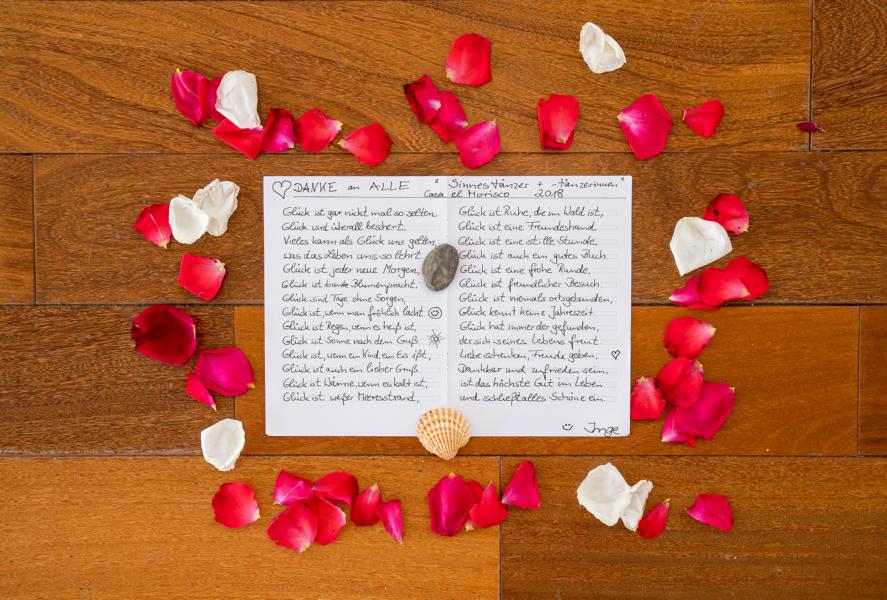 DANKE an ALLE "Sinnestänzer + -tänzerinnen"
Casa el Morisco 2018
Glück ist gar nicht mal so selten,
Glück wird überall beschert.
Vieles kann als Glück uns gelten,
was das Leben uns so lehrt.
Glück ist jeder neue Morgen,
Glück ist bunte Blumenpracht.
Glück sind Tage ohne Sorgen,
Glück ist, wenn man fröhlich lacht
Glück ist Regen, wenn es heiß ist,
Glück ist Sonne nach dem Guß.
Glück ist, wenn ein Kind ein Eis ißt,
Glück ist auch ein lieber Gruß
Glück ist Wärme, wenn es kalt ist,
Glück ist weißer Meeresstrand,
Glück ist Ruhe, die im Wald ist,
Glück ist eine Freundeshand.
Glück ist eine stille Stunde,
Glück ist auch ein gutes Buch
Glück ist eine frohe Runde,
Glück ist freundlicher Besuch.
Glück ist niemals ortsgebunden,
Glück kennt keine Jahreszeit.
Glück hat immer der gefunden,
der sich seines Lebens freut.
Liebe schenken, Freude geben,
Dankbar und zufrieden sein,
ist das höchste Gut im Leben
und schließt alles Schöne ein.
Inge